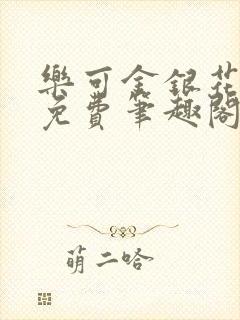 樂可金銀花
免費筆趣閣
萌二哈